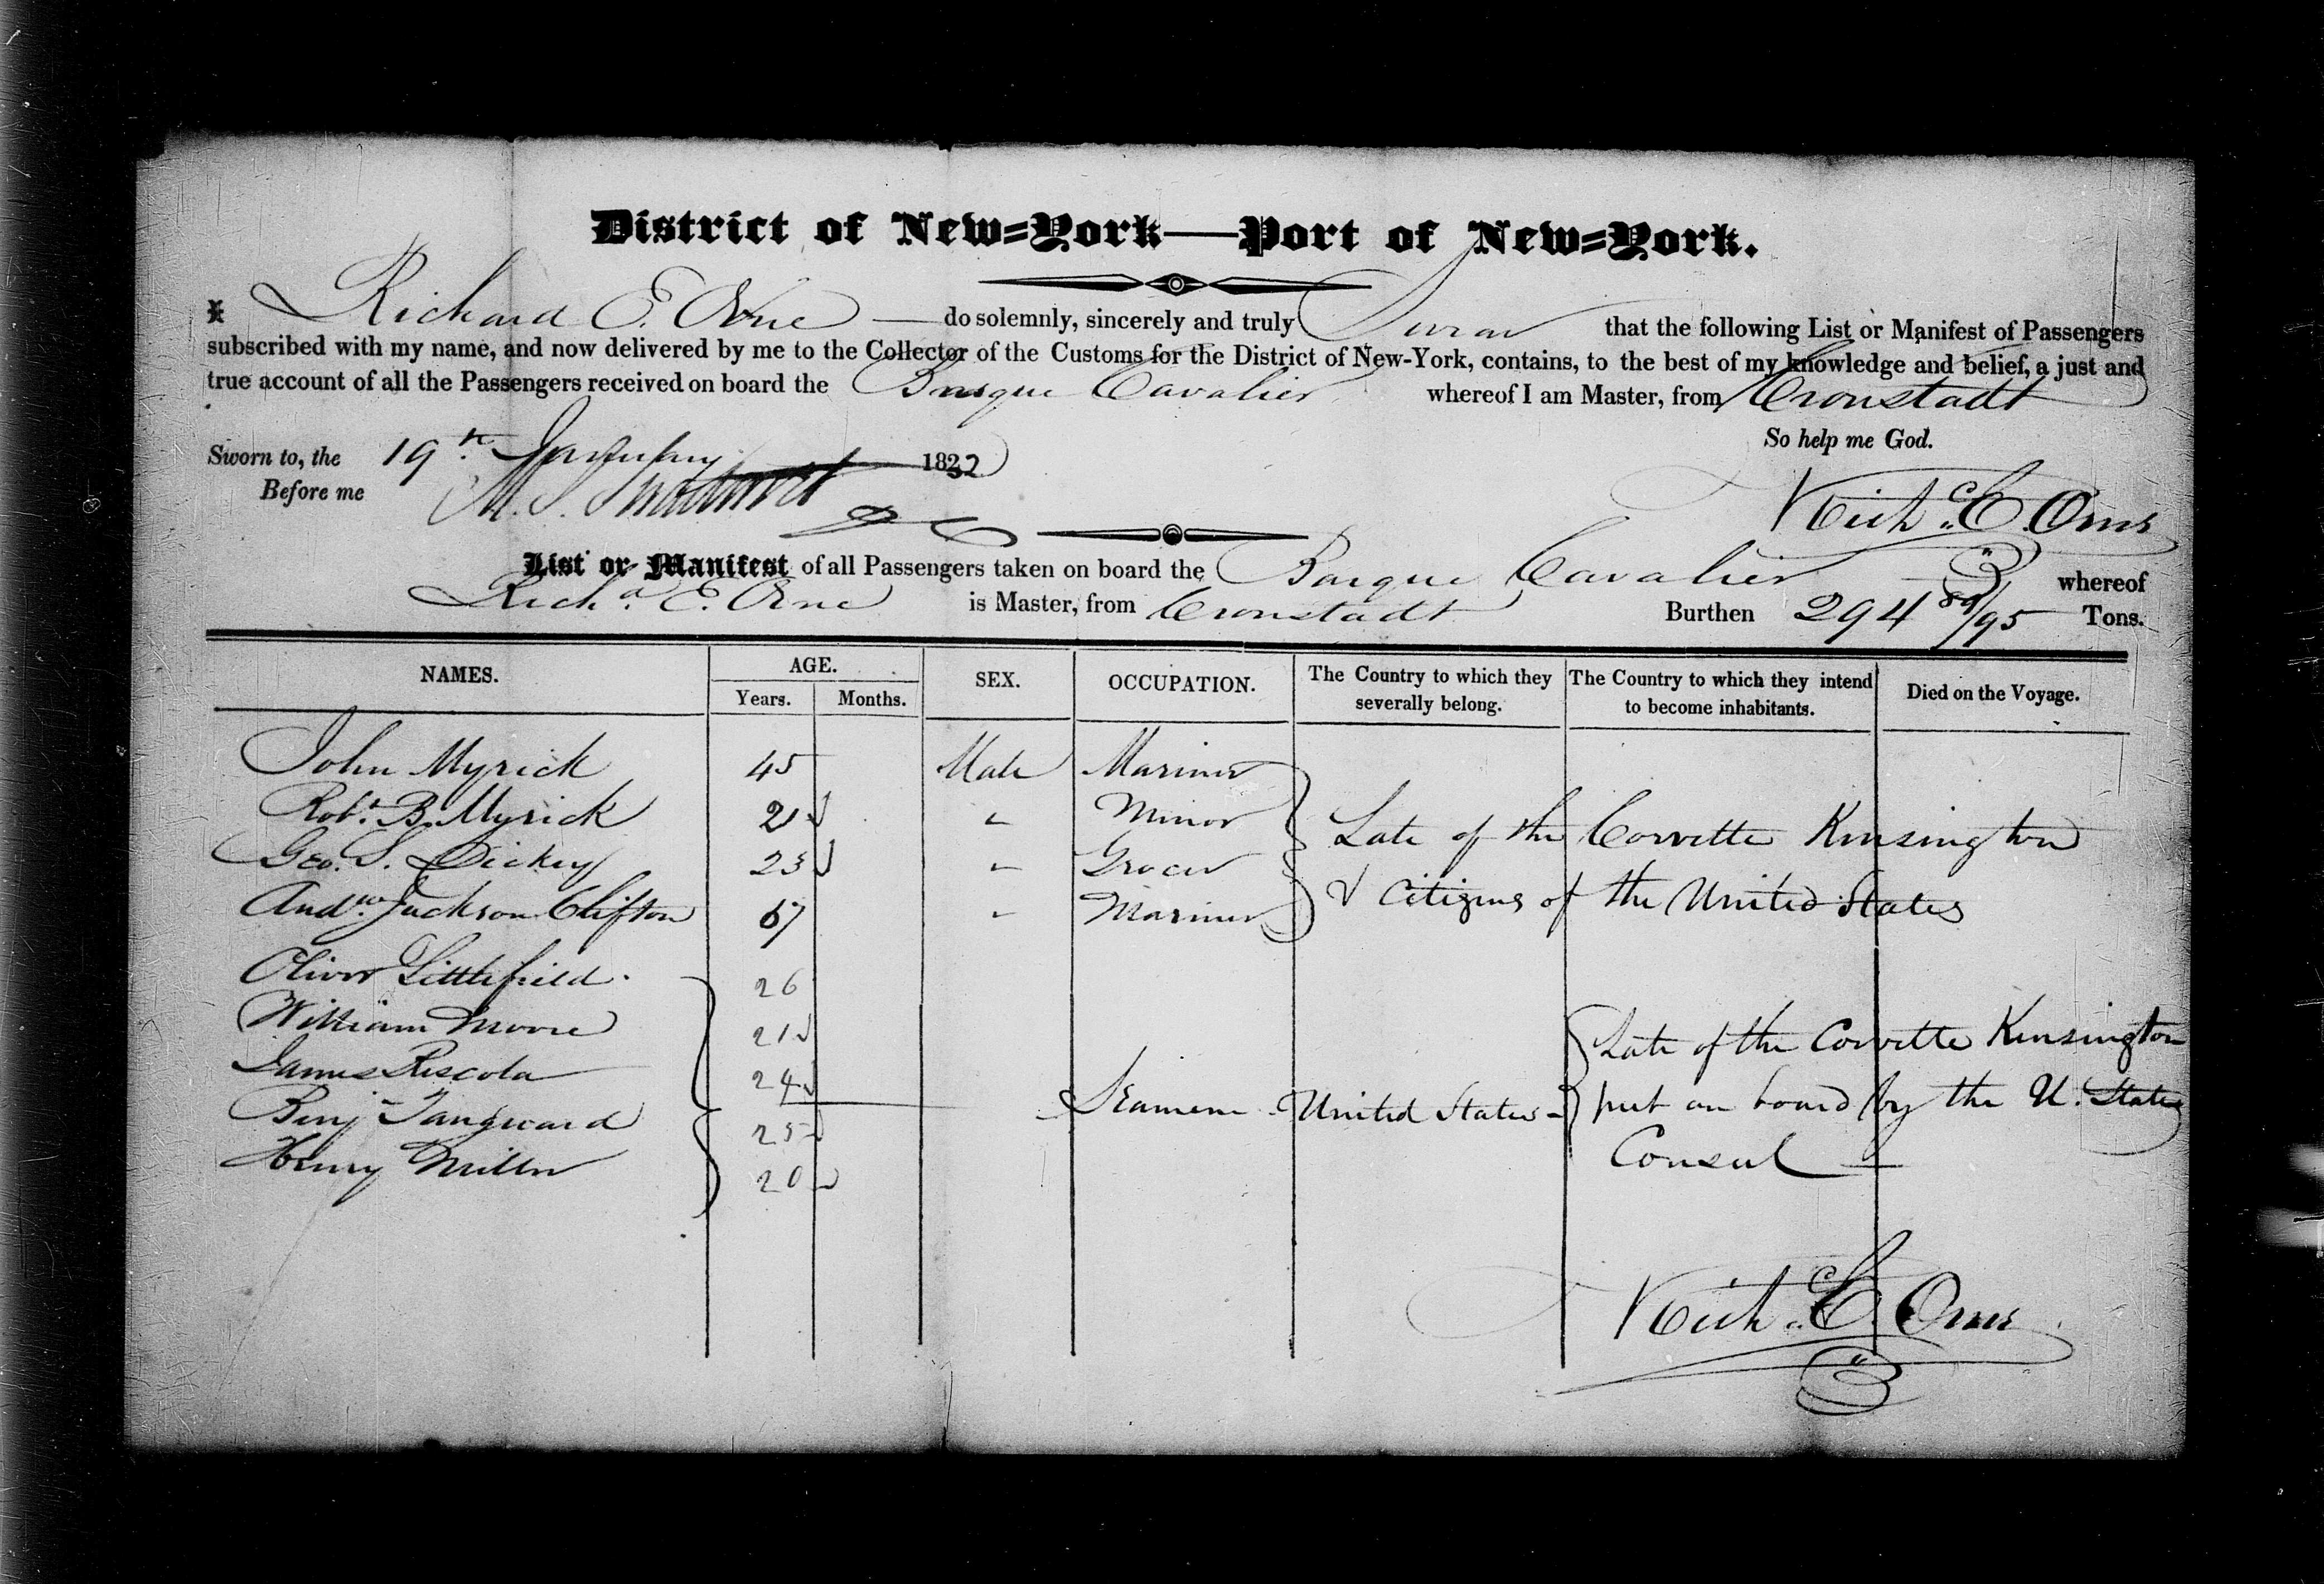 District of New-York—Port of New-York.
I Richard E. Orne do solemnly, sincerely and truly Swear that the following List or Manifest of Passengers
subscribed with my name, and now delivered by me to the Collector of the Customs for the District of New-York, contains, to the best of my knowledge and belief, a just and
true account of all the Passengers received on board the Barque Cavalier whereof I am Master, from Cronstadt
So help me God.
Sworn to, the 19th January 1832
Before me
Richd. E. Orne
List or Manifest of all Passengers taken on board the Barque Cavalier whereof
Richd. E. Orne is Master, from Cronstadt Burthen 294 89/95 Tons.
NAMES. AGE. SEX. OCCUPATION. The Country to which they severally belong. The Country to which they intend to become inhabitants. Died on the Voyage.
Years. Months.
John Myrick 45 Male Mariner
Robt. B. Myrick 21 " Minor
Late of the Corvette Kensington
Geo. S. Dickey 23 " Grocer
Andw. Jackson Clifton 67 " Mariner
& Citizens of the United States
Oliver Littlefield 26
William Moore 21
James Riscola 24
Benj Tangward 25
Henry Miller 20
Seamen United States
Late of the Corvette Kensington
put on board by the U. States
Consul
Richd. E. Orne